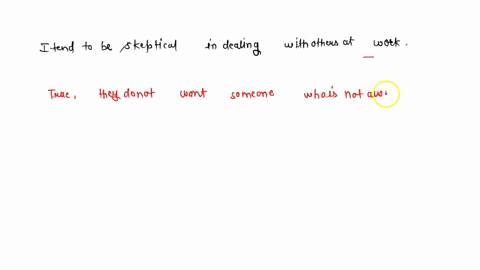 I tend to be skeptical in dealing with others at work.
True, they do not want someone who is not aw.